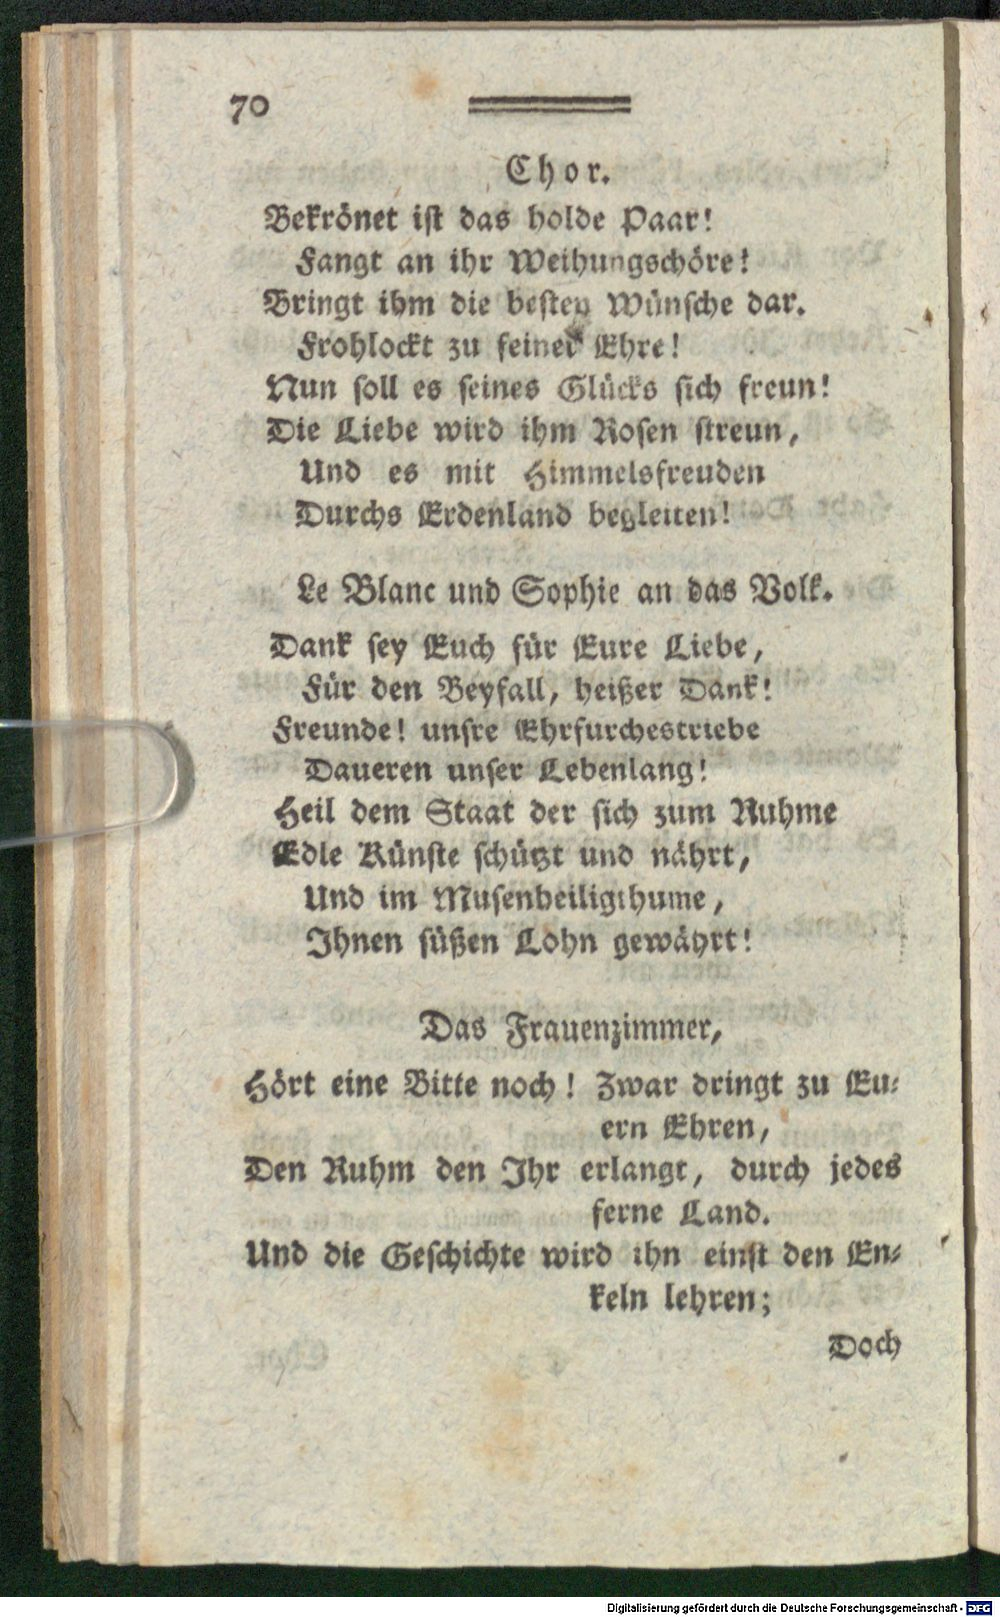 70
Chor.
Bekrönet ist das holde Paar!
Fangt an ihr Weihungschöre!
Bringt ihm die besten Wünsche dar.
Frohlockt zu seiner Ehre!
Nun soll es seines Glücks sich freun!
Die Liebe wird ihm Rosen streun,
Und es mit Himmelsfreuden
Durchs Erdenland begleiten!
Le Blanc und Sophie an das Volk.
Dank sey Euch für Eure Liebe,
Für den Beyfall, heißer Dank!
Freunde! unsre Ehrfurchestriebe
Daueren unser Lebenlang!
Heil dem Staat der sich zum Ruhme
Edle Künste schützt und nährt,
Und im Musenheiligthume,
Ihnen süßen Lohn gewährt!
Das Frauenzimmer,
Hört eine Bitte noch! Zwar dringt zu Eu-
ern Ehren,
Den Ruhm den Ihr erlangt, durch jedes
ferne Land.
Und die Geschichte wird ihn einst den En-
keln lehren;
Doch
Digitalisierung gefördert durch die Deutsche Forschungsgemeinschaft - DFG